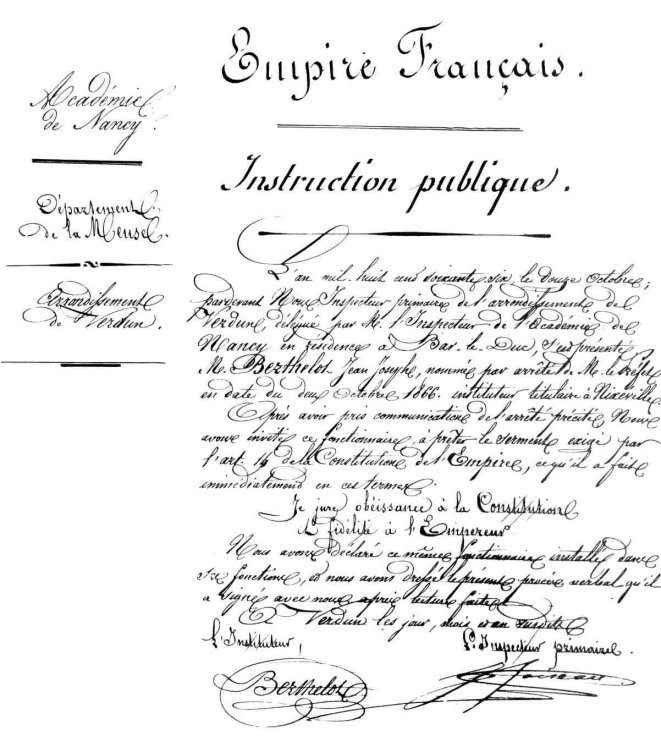 Empire Français.
Instruction publique.
Académie
de Nancy.
Département
de la Meuse.
Arrondissement
de Verdun.
L'an mil huit cent soixante six le douze octobre;
pardevant Nous Inspecteur primaire de l'arrondissement de
Verdun, délégué par M. l'Inspecteur de l'Académie de
Nancy en résidence à Bar-le-Duc, s'est présenté
M. Berthelot Jean Joseph, nommé par arrêté de M. le Préfet
en date du deux Octobre 1866. instituteur titulaire à Nixéville
Après avoir pris communication de l'arrêté précité, Nous
avons invité ce fonctionnaire, à prêter le serment exigé par
l'art. 14 de la Constitution de l'Empire, ce qu'il a fait
immédiatement en ces termes:
Je jure obéissance à la Constitution
& fidélité à l'Empereur
Nous avons déclaré ce même fonctionnaire installé dans
ses fonctions, et nous avons dressé le présent procès verbal qu'il
a signé avec nous après lecture faite
Verdun les jour, mois et an susdits
L'Instituteur,
L'Inspecteur primaire.
Berthelot